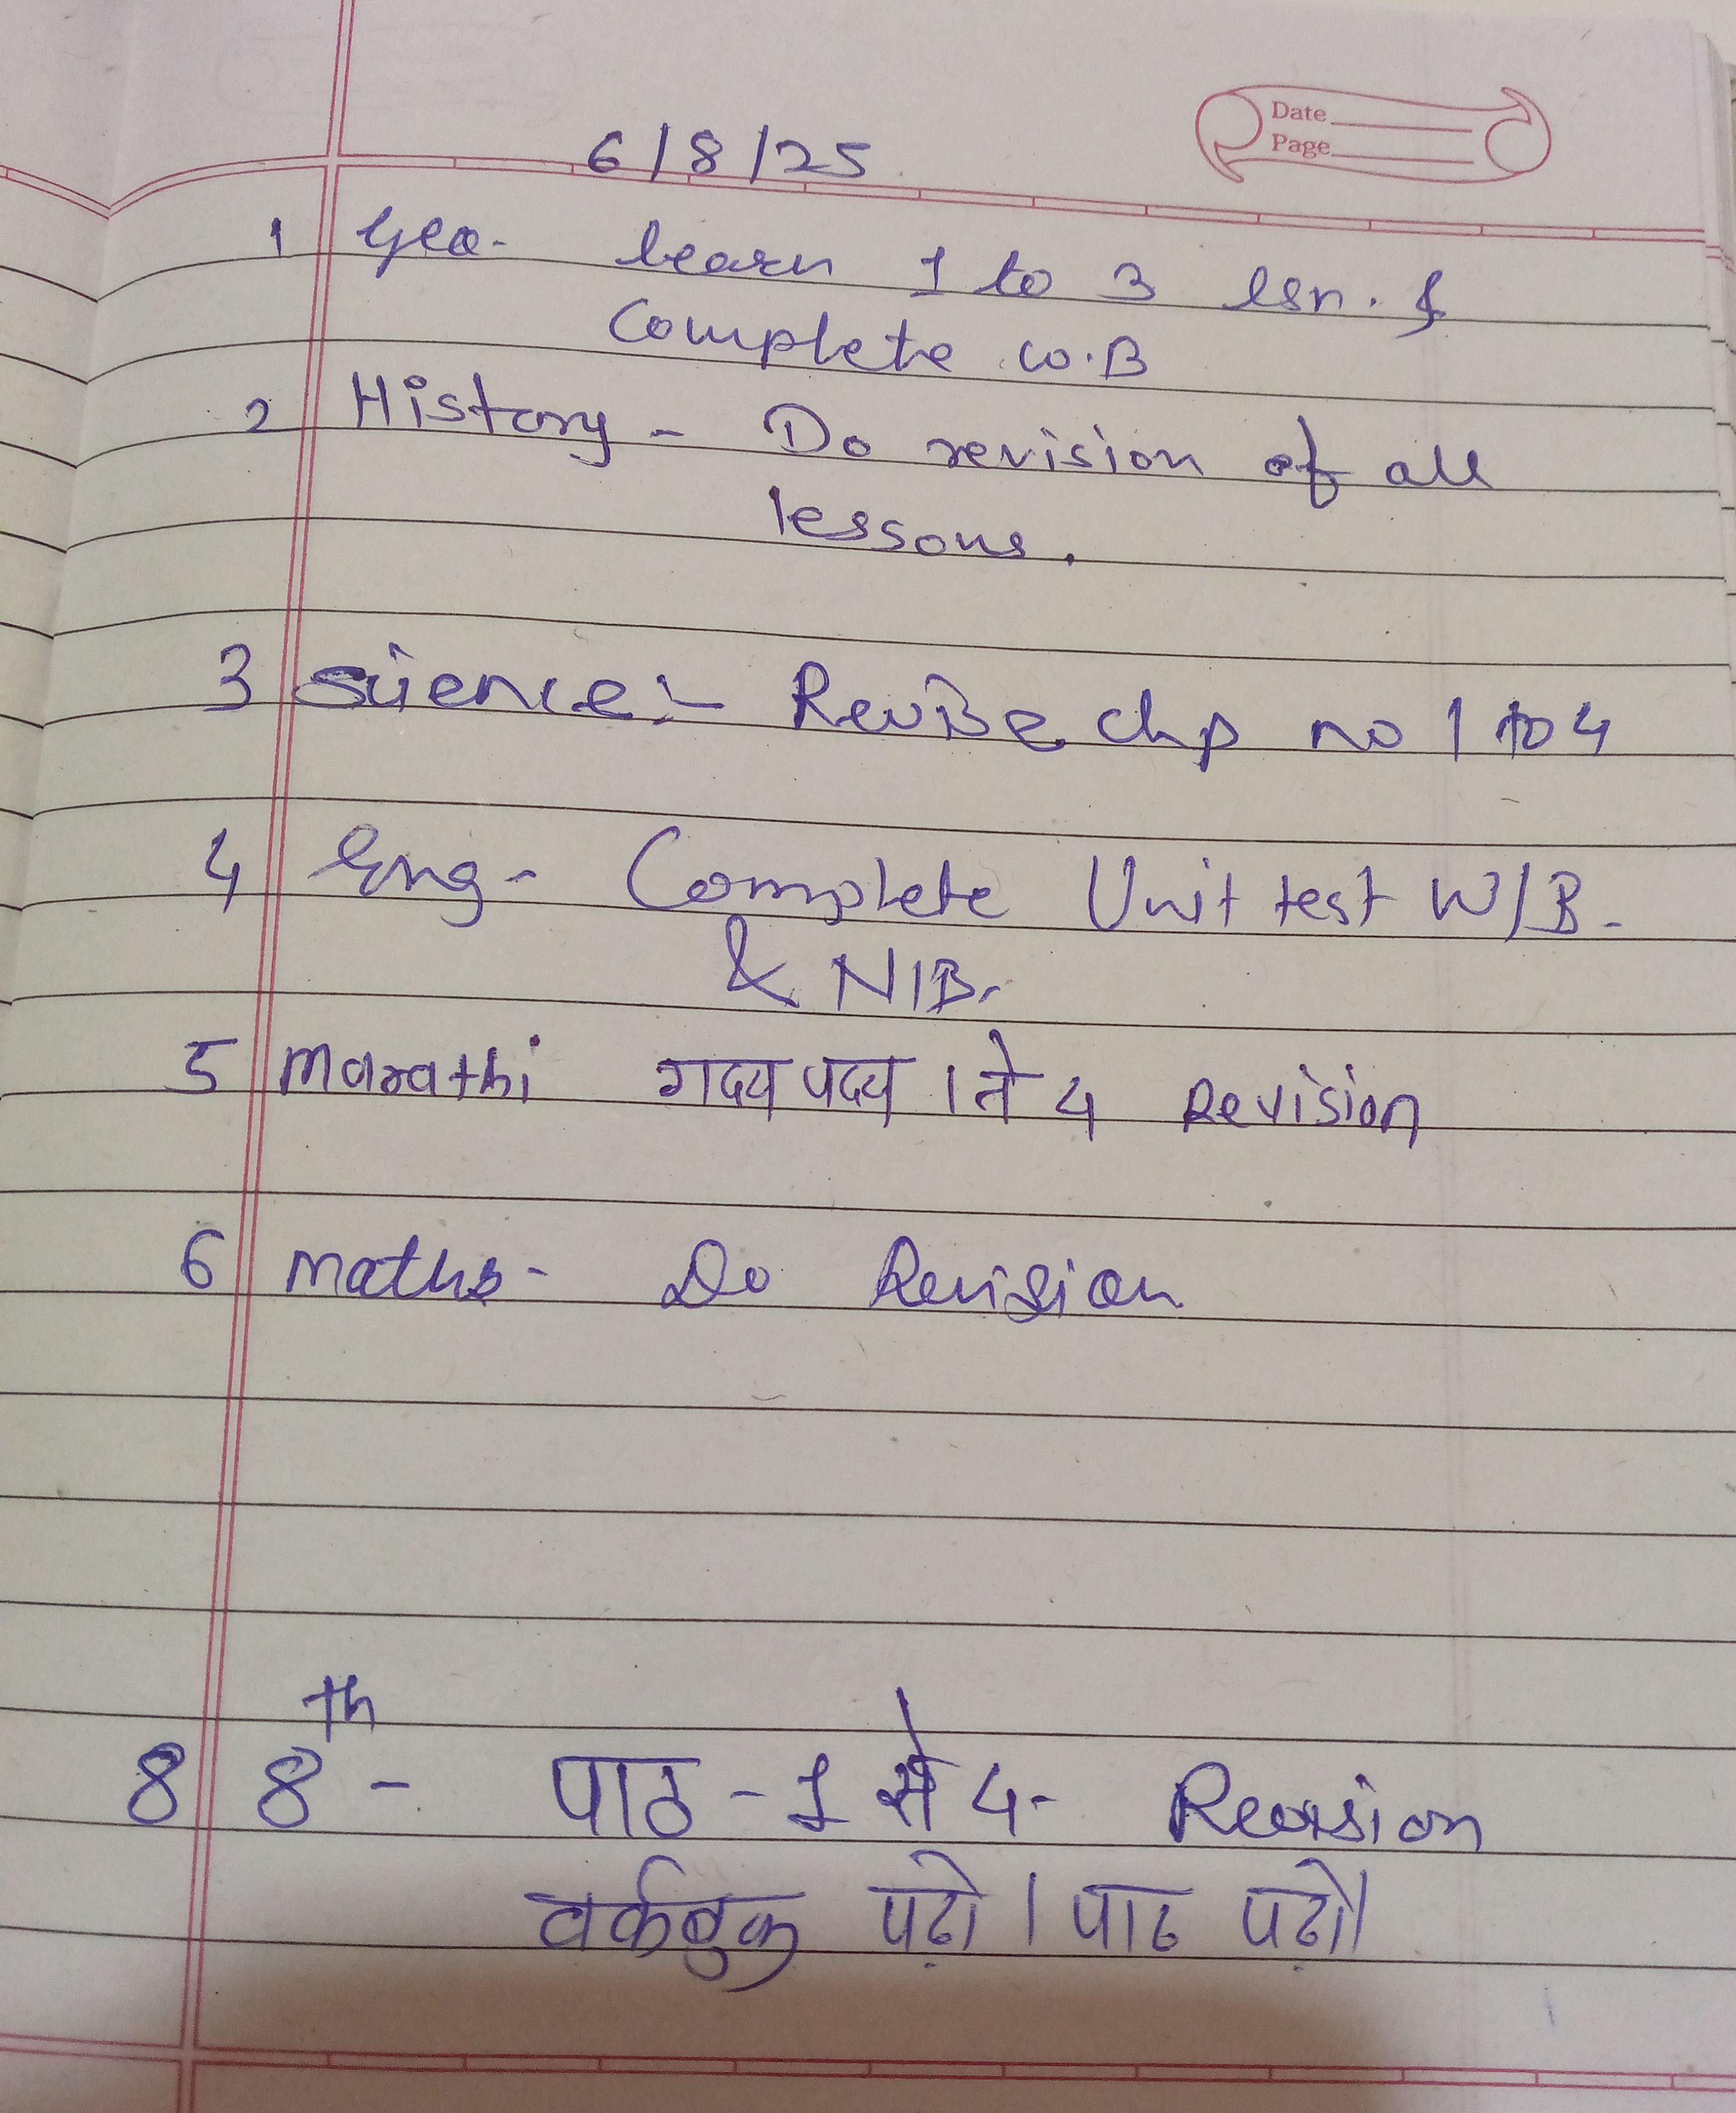 Date
Page
6/8/25
1 Geo- learn 1 to 3 lsn. &
Complete W.B
2 History - Do revision of all
lessons.
3 Science:- Revise chp no 1 to 4
4 Eng- Complete Unit test W/B.
& N/B.
5 Marathi गद्य पद्य 1 ते 4 Revision
6 Maths- Do Revision
8 8th - पाठ - 1 से 4- Revision
वर्कबुक पढ़ो । पाठ पढ़ो।